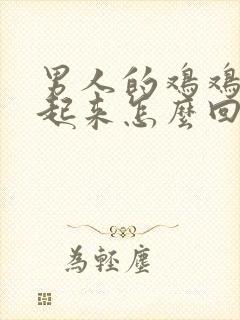 男人的鸡鸡
起来怎麼回
為輕塵